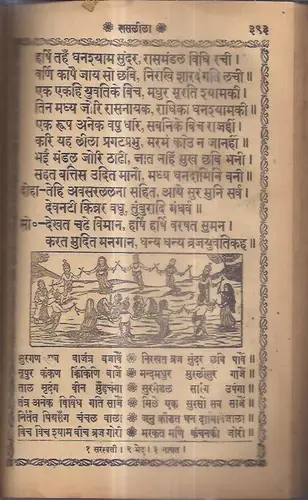 ❋ रासलीला ❋ ३९३
हर्षि तहँ घनश्याम सुंदर, रासमंडल विधि रची।
वर्णि कापै जाय सो छबि, निरखि शारद गति लची॥
एक एकहि युवतिके बिच, मधुर मूरति श्यामकी।
तिन मध्य जोरि रासनायक, राधिका घनश्यामकी॥
एक रूप अनेक वपु धरि, सबनिके बिच राजहीं।
करि यह लीला प्रगटप्रभु, मरम काँउ न जानहीं॥
भई मंडल जोरि ठाढी, जात नहिं मुख छबि भनी।
सहस बत्तिस उदित मानो, मध्य घनदामिनि घनी॥
दोहा-तेहि अवसरललना सहित, आये सुर मुनि सर्व।
देवनटी किन्नर बधू, तुंबुरादि गंधर्व॥
सो०-देखत चढे विमान, हर्षि हर्षि बरषत सुमन।
करत मुदित मनगान, धन्य धन्य ब्रजयुवतिकह॥
सुरगण बाजंत्र बजावें ❋ निरखत ब्रज सुंदर छबि पावें॥
नूपुर कंकण किंकिणि बाजें ❋ मन्दमधुर मुरलीसुर गाजें॥
ताल मृदंग बीन मुँहचंगा ❋ सुरमंडल सारंगि उपंगा॥
तंत्र अनेक विविध गति साजैं ❋ मिले एक सुरसों सब बाजैं॥
निर्तत पियसँग चंचल बाला ❋ जनु क्रीडत घन
बिच बिच श्याम बीच ब्रज गोरी ❋ मरकत मणि कंचनकी जोरी॥
१ सरस्वती। २ भेद। ३ नाचत।